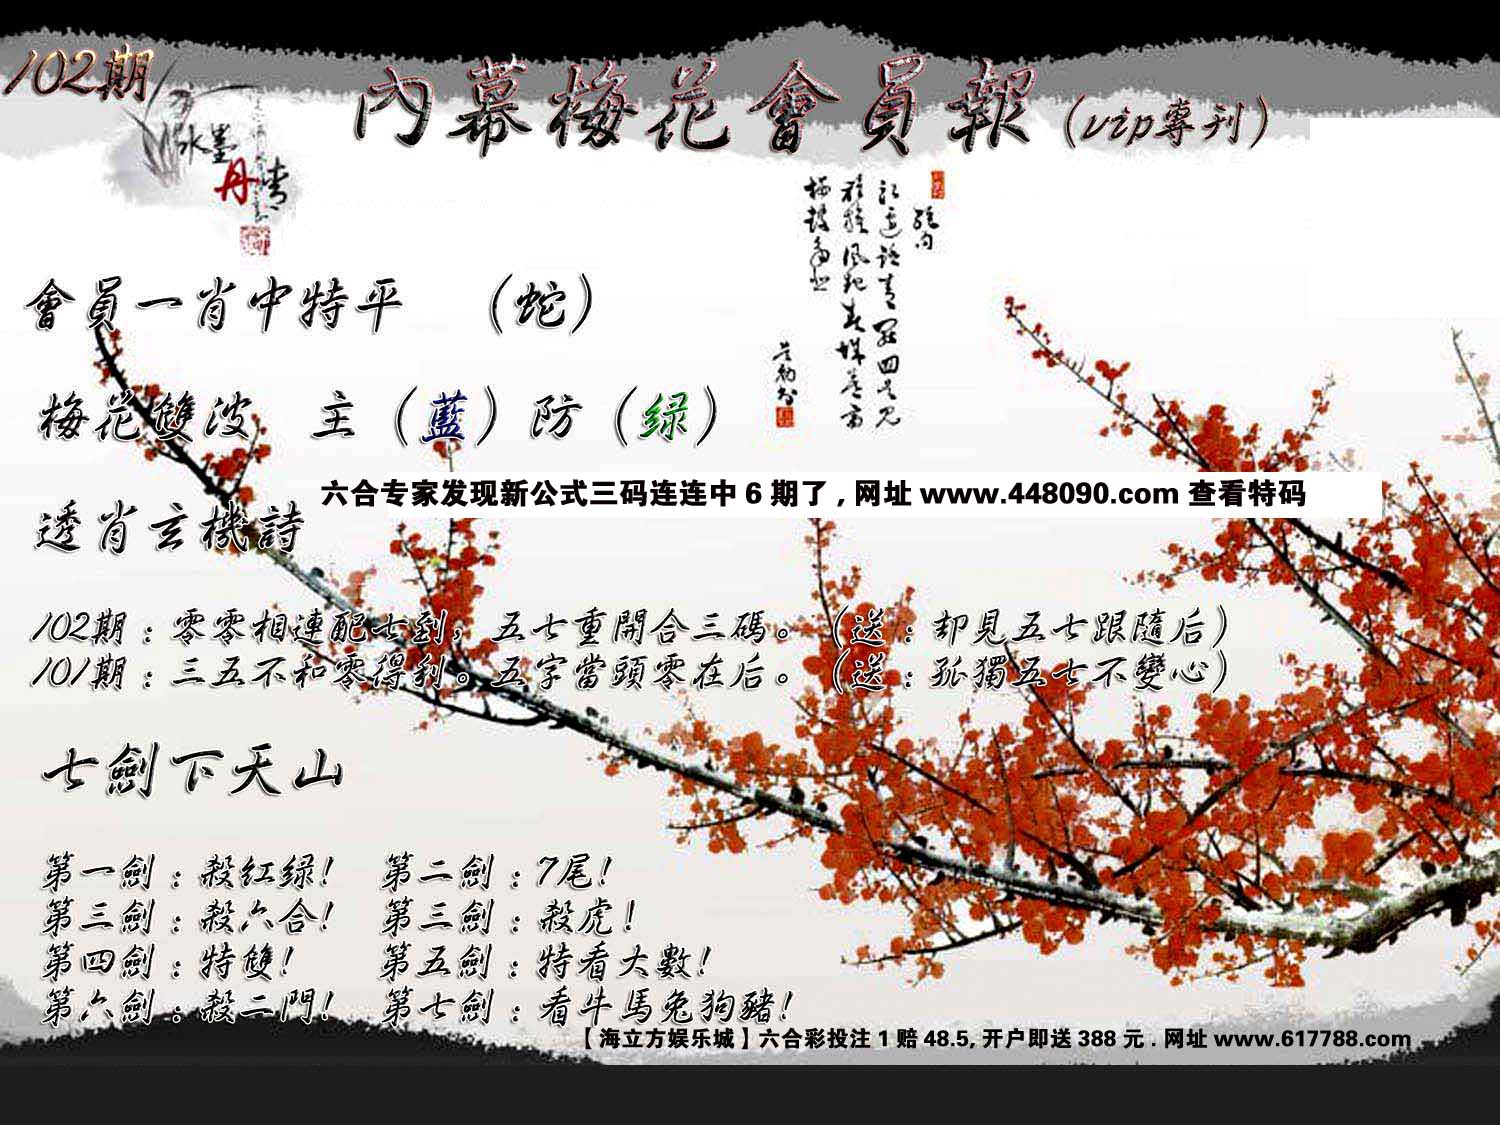 102期
內幕梅花會員報（vip專刊）
水墨
丹青
會員一肖中特平　（蛇）
梅花雙波　主（藍）防（绿）
六合专家发现新公式三码连连中6期了,网址www.448090.com查看特码
透肖玄機詩
102期：零零相連配七到，五七重開合三碼。（送：却見五七跟隨后）
101期：三五不和零得利。五字當頭零在后。（送：孤獨五七不變心）
七劍下天山
第一劍：殺紅绿！　第二劍：7尾！
第三劍：殺六合！　第三劍：殺虎！
第四劍：特雙！　第五劍：特看大數！
第六劍：殺二門！　第七劍：看牛馬兔狗豬！
【海立方娱乐城】六合彩投注1赔48.5,开户即送388元.网址www.617788.com